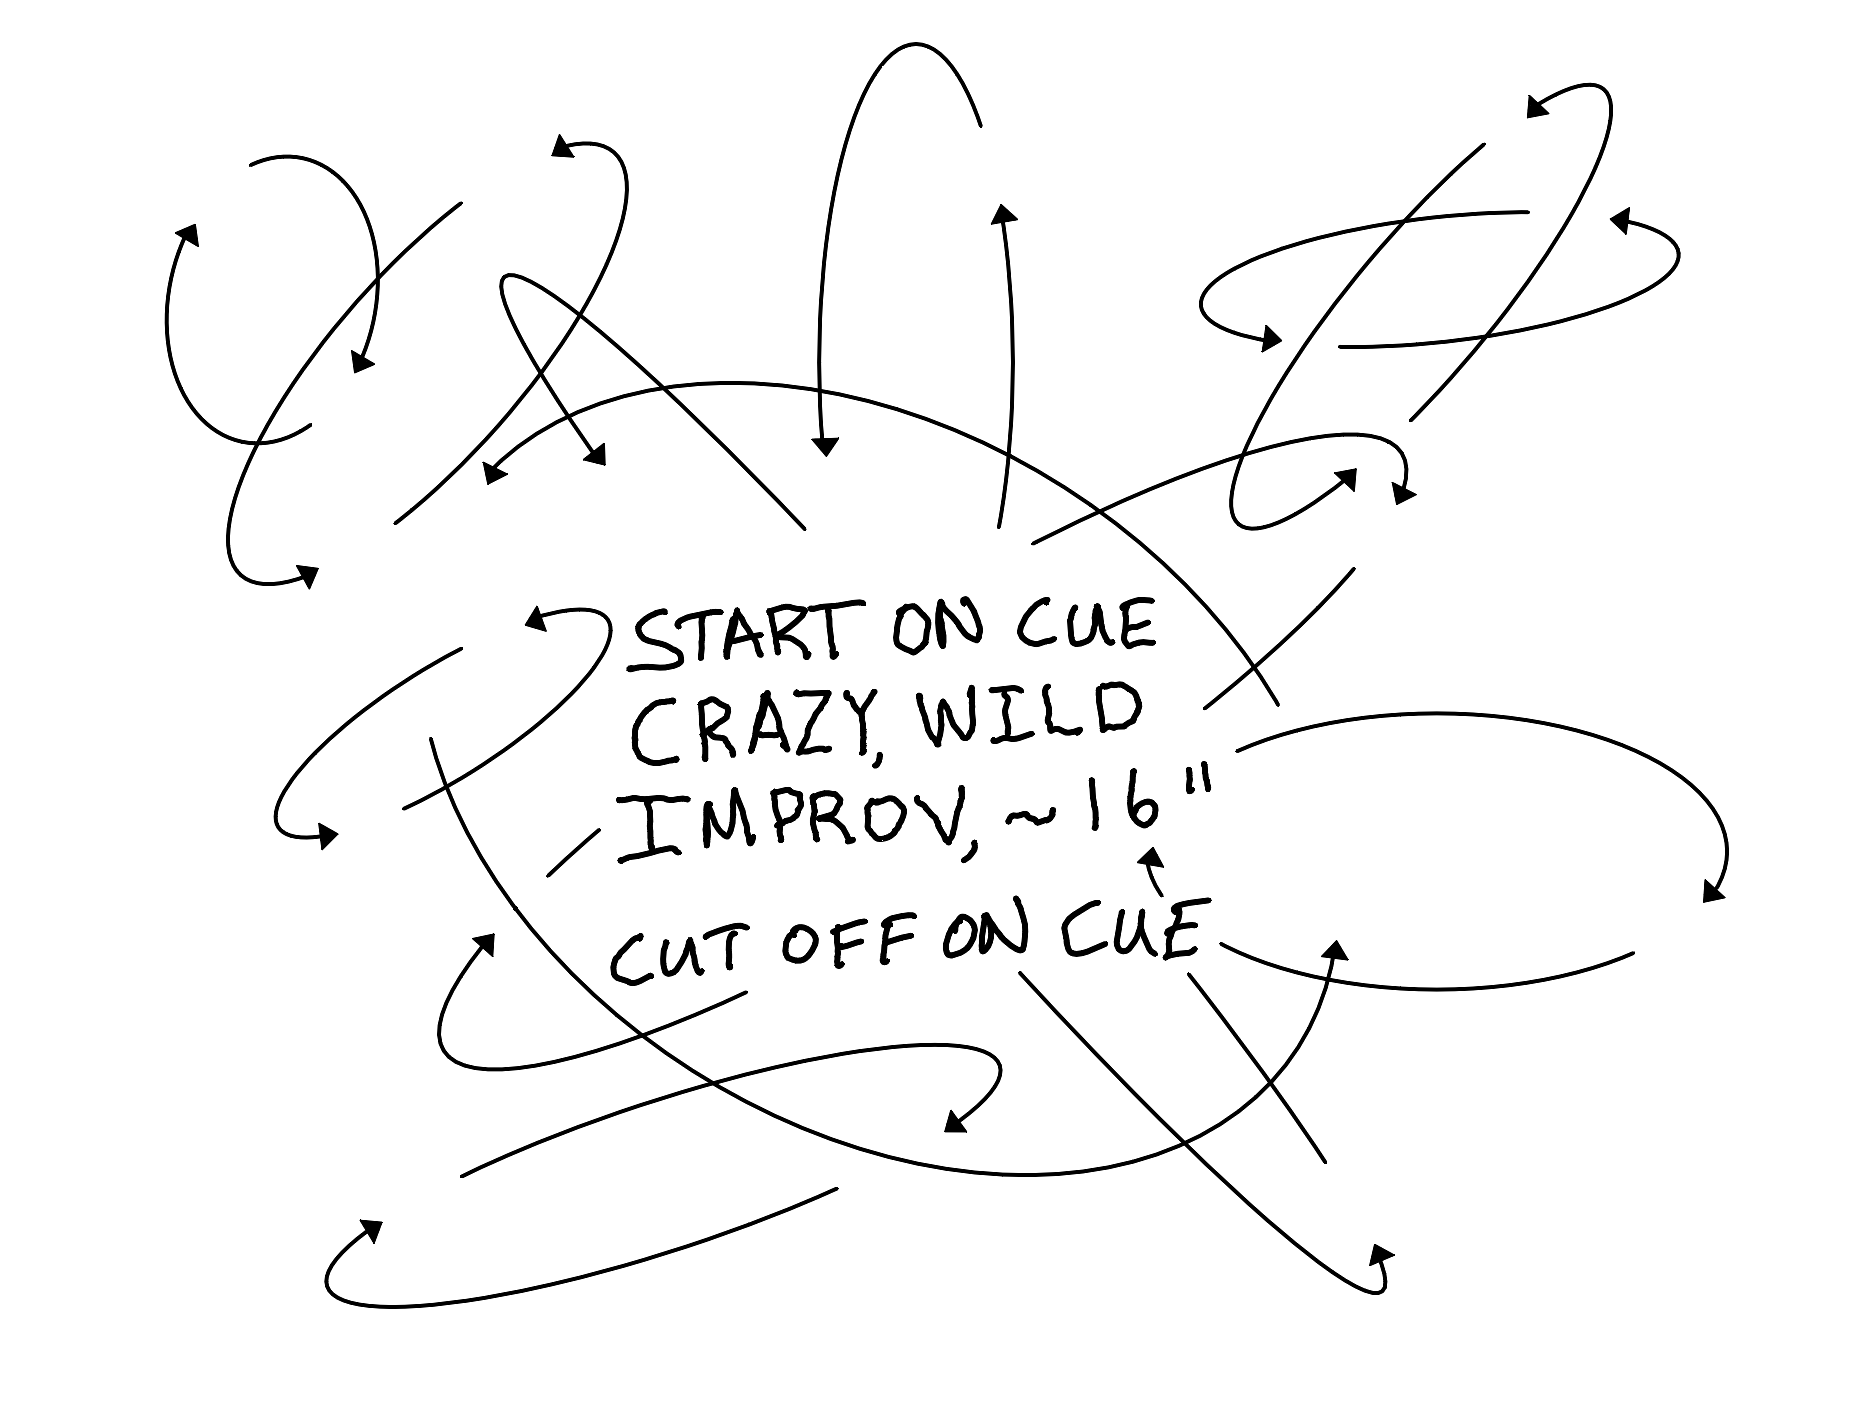 START ON CUE
CRAZY, WILD
IMPROV, ~16"
CUT OFF ON CUE